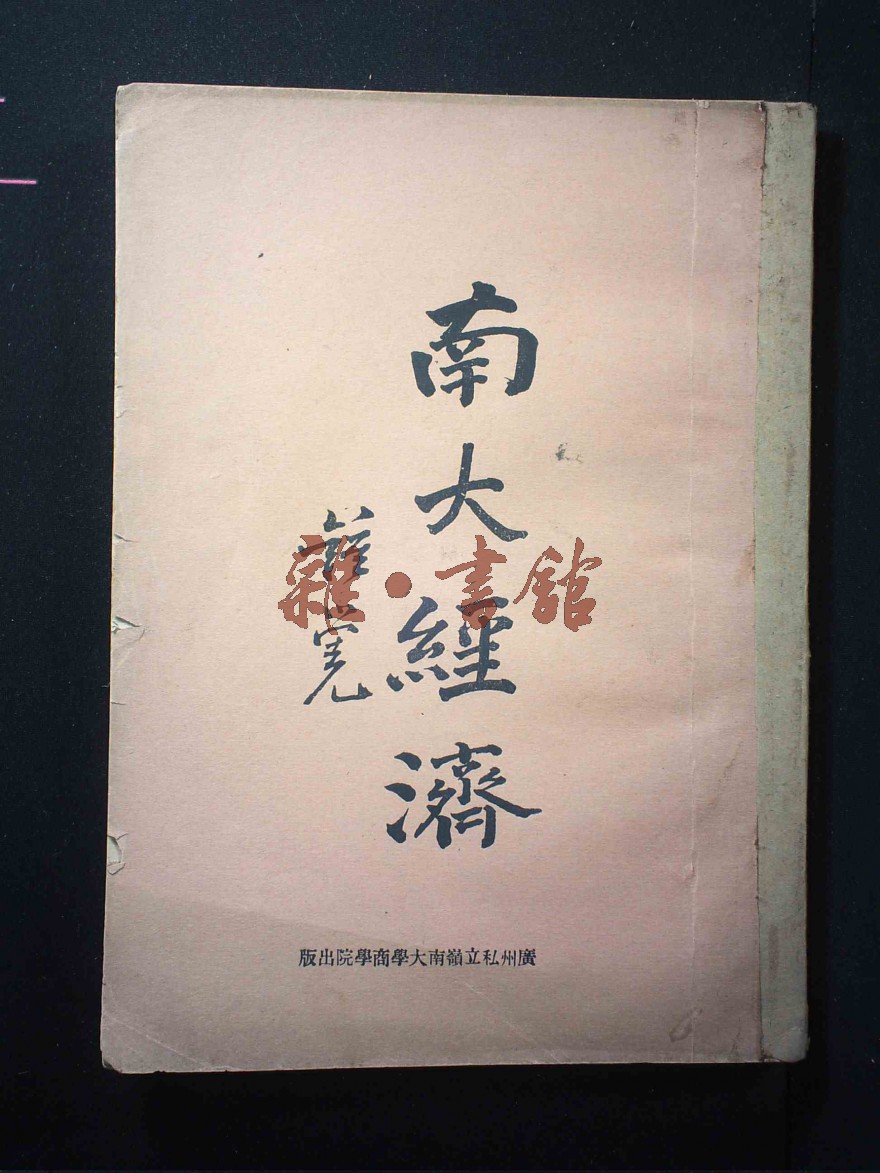 南大經濟
雜•書舘
廣州私立嶺南大學商學院出版